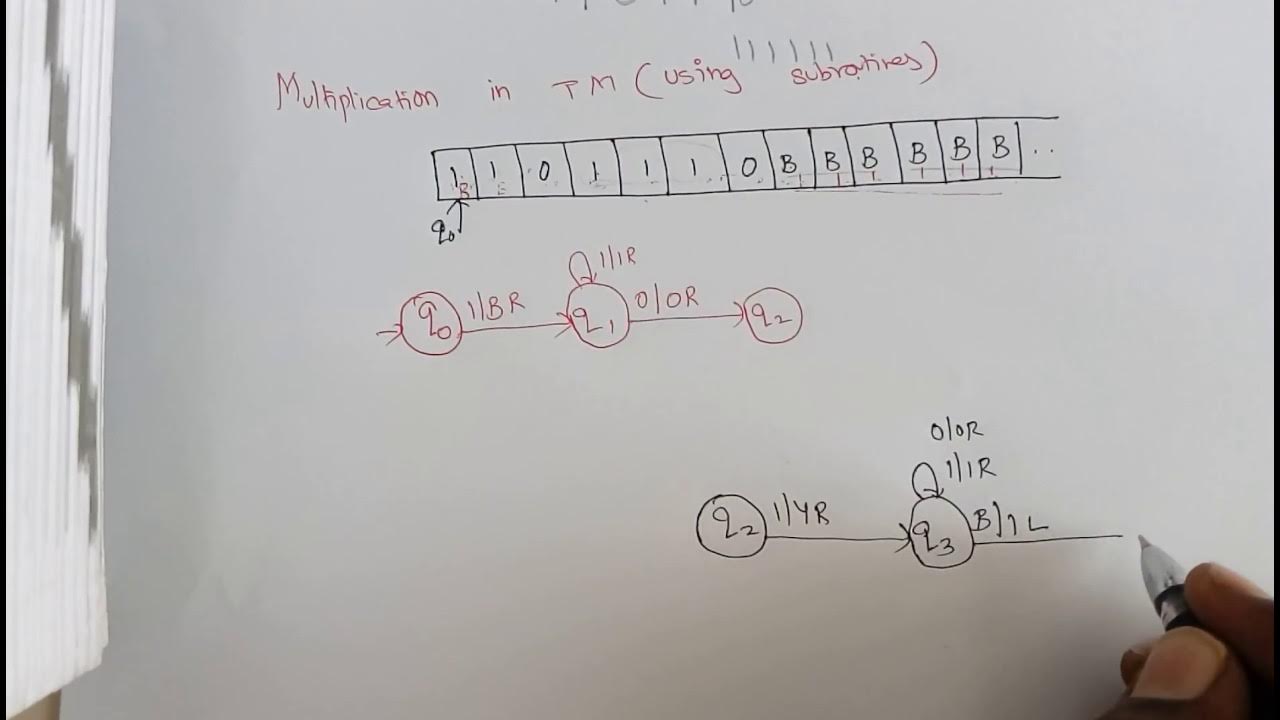 Multiplication in TM (using subroutines)
1 1 0 1 1 1 0 B B B B B B ..
B
q0
1/1R
q0 1/BR q1 0/0R q2
0/0R
1/1R
q2 1/YR q3 B/1L